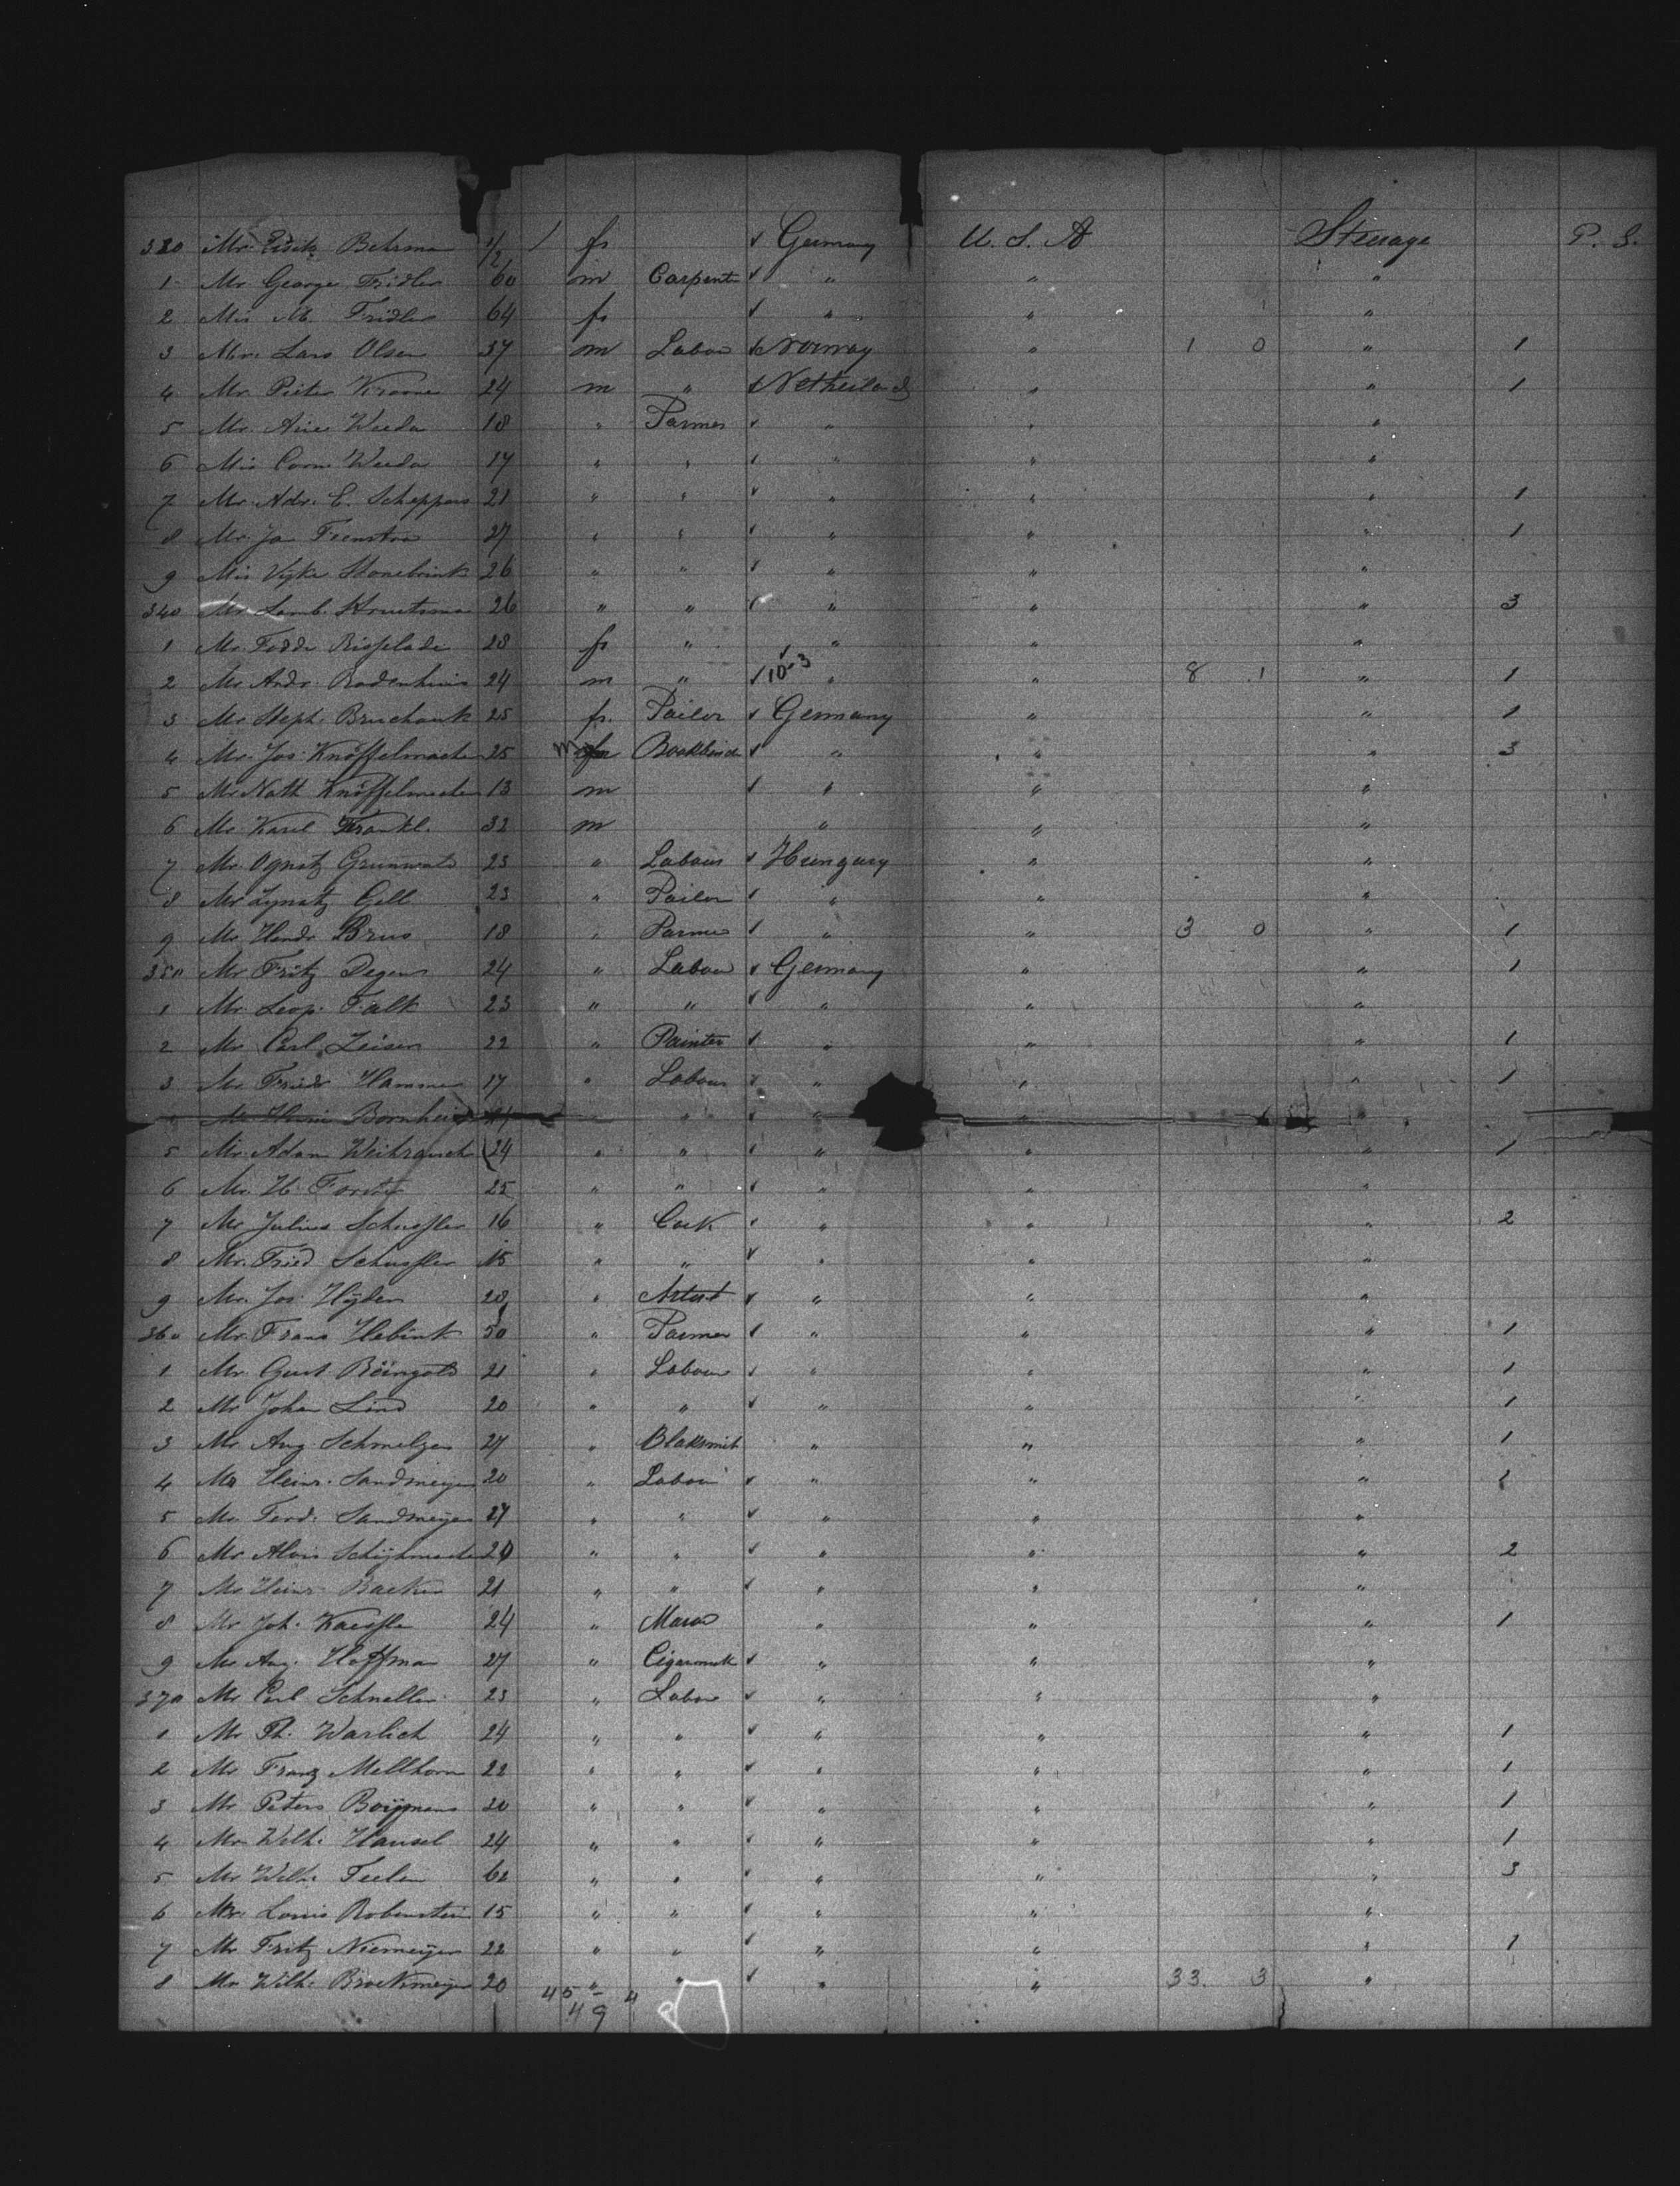 330 Mr. Betsma 1/2 / f. ✓ Germany U. S. A Steerage P. S.
1 Mr George Fridler 60 m Carpente ✓ " " "
2 Mis M. Fridler 64 f. ✓ " " "
3 Mr. Lars Olsen 37 m Labou ✓ Norway " 1 0 " 1
4 Mr. Pieter Kroone 24 m " ✓ Netherlands " " 1
5 Mr. Arie Weeda 18 " Farmer ✓ " " "
6 Mis Corn. Weeda 17 " " ✓ " " "
7 Mr. Adr. C. Scheppers 21 " " ✓ " " " 1
8 Mr. Ja Feenstra 27 " " ✓ " " " 1
9 Mis Stonebrink 26 " " ✓ " " "
340 Mr Lamb. 26 " " ✓ " " " 3
1 Mr. 28 f. " ✓ " " "
2 Mr Andr. Rodenhuis 24 m " ✓ 10-3 " " 8 1 " 1
3 Mr Steph. Bruchank 25 f. Tailor ✓ Germany " " 1
4 Mr. Jos Knöffelmache 25 m Bookbinde ✓ " " " 3
5 Mr Nath Knöffelmache 13 m ✓ " " "
6 Mr. Karel Frankl. 32 m " " "
7 Mr. Grunwald 23 " Labour ✓ Hungary " "
8 Mr Gell 23 " Tailor ✓ " " "
9 Mr. Hendr. Brus 18 " Farmer ✓ " " 3 0 " 1
350 Mr Fritz Degen 24 " Labour ✓ Germany " " 1
1 Mr Leop. Falk 23 " " ✓ " " "
2 Mr Carl Zeiser 22 " Painter ✓ " " " 1
3 Mr Friedr Hammer 17 " Labour ✓ " " " 1
Mr Bornhei " " ✓ " " "
5 Mr Adam Weihrauch 24 " " ✓ " " " 1
6 Mr. H. 25 " " ✓ " " "
7 Mr Julius Schussler 16 " Cook ✓ " " " 2
8 Mr. Fried Schussler 15 " " ✓ " " "
9 Mr. Jos. Hyden 28 " Artist ✓ " " "
360 Mr. Frans Hebink 50 " Farmer ✓ " " " 1
1 Mr. Gust 21 " Labour ✓ " " " 1
2 Mr Johan Lind 20 " " ✓ " " " 1
3 Mr Aug Schmelzer 27 " Blaksmith " " " 1
4 Mr Heinr. Sandmeyer 20 " Labour ✓ " " "
5 Mr. Ferd. Sandmeyer 27 " " ✓ " " "
6 Mr Alois " " ✓ " " " 2
7 Mr Heinr. Backer 21 " " ✓ " " "
8 Mr Joh. 24 " Mason " " " 1
9 Mr Aug. Hoffman 27 " Cigarmak ✓ " " "
370 Mr Carl Schneller 23 " Labou ✓ " " "
1 Mr Ph. Warlich 24 " " ✓ " " " 1
2 Mr Franz Mellhorn 22 " " ✓ " " " 1
3 Mr Peters 20 " " ✓ " " " 1
4 Mr Wilh. Hansel 24 " " ✓ " " " 1
5 Mr Wilh. Feelin 62 " " ✓ " " " 3
6 Mr. Louis Robenstein 15 " " ✓ " " "
7 Mr Fritz Niemeyer 22 " " ✓ " " " 1
8 Mr Wilh. Brockmeyer 20 " " ✓ " " 33. 3 "
45 - 4
49